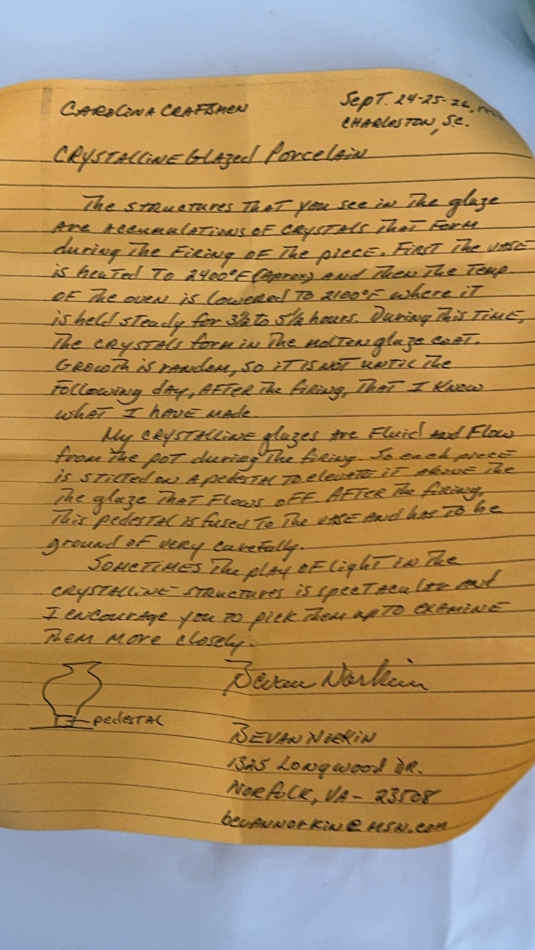 CAROLINA CRAFTSMEN
SEPT. 24-25-26,
CHARLESTON, SC.
CRYSTALLINE GLAZED PORCELAIN
THE STRUCTURES THAT YOU SEE IN THE glaze
ARE ACCUMULATIONS OF CRYSTALS THAT FORM
during THE FIRING OF THE PIECE. FIRST THE VASE
is heated TO 2400°F (Aprox) AND Then The Temp
OF The oven is lowered TO 2100°F where iT
is held steady for 3½ to 5½ hours. During This TIME,
The CRYSTALS form in The molten glaze coat.
GROWTH is random, so iT IS NOT UNTIL The
Following day, AFTER The firing, THAT I Know
what I HAVE MADE.
My CRYSTALLINE glazes ARE Fluid AND Flow
from The pot during The firing. So each piece
is stilted on A pedestal TO elevate iT ABOVE The
The glaze THAT Flows OFF. AFTER The firing,
This pedestal is fused TO The VASE AND has TO be
ground OF very carefully.
SOMETIMES The play OF light in The
CRYSTALLINE STRUCTURES is spectacular AND
I encourage you TO pick Them up TO EXAMINE
Them MORE closely.
Bevan Norkin
pedestal
BEVAN NORKIN
1325 Longwood DR.
NORFOLK, VA - 23508
bevannorkin@MSN.com